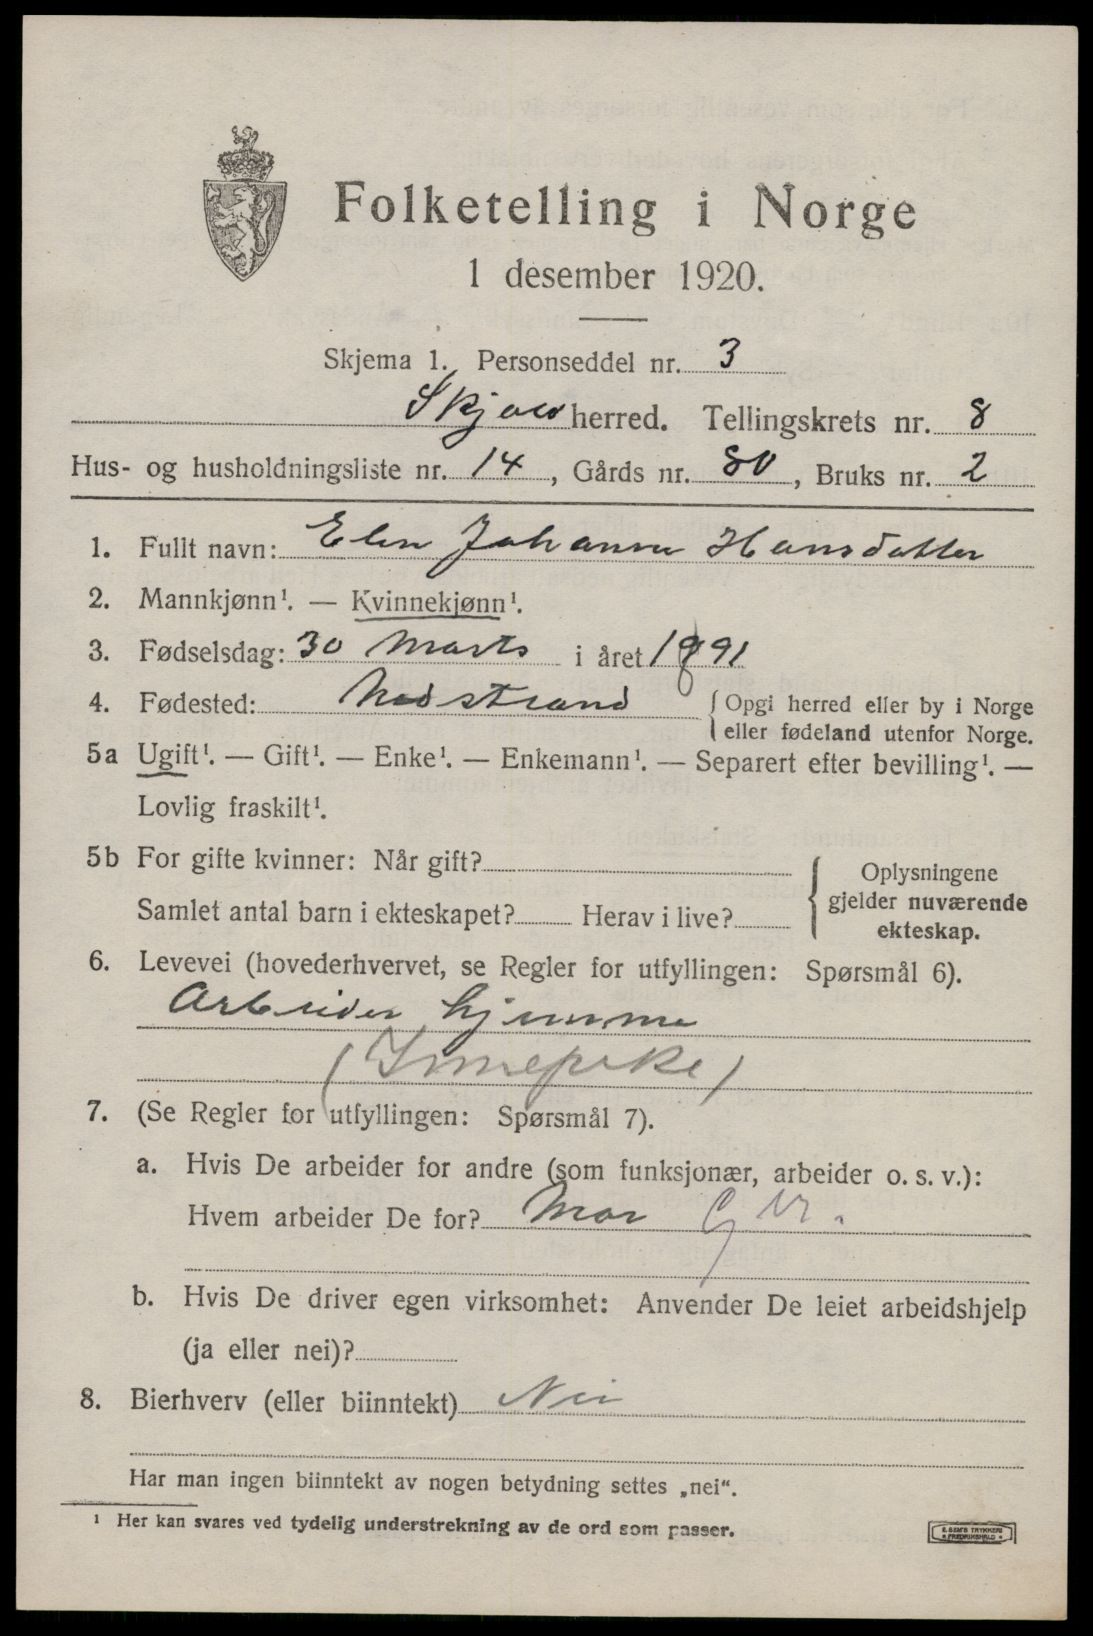 Folketelling i Norge
1 desember 1920.
Skjema 1. Personseddel nr. 3
Skjold herred. Tellingskrets nr. 8
Hus- og husholdningsliste nr. 14, Gårds nr. 80, Bruks nr. 2
1. Fullt navn: Elen Johanne Hansdatter
2. Mannkjønn¹. — Kvinnekjønn¹.
3. Fødselsdag: 30 Marts i året 1891
4. Fødested: Nedstrand {Opgi herred eller by i Norge
eller fødeland utenfor Norge.
5a Ugift¹. — Gift¹. — Enke¹. — Enkemann¹. — Separert efter bevilling¹. —
Lovlig fraskilt¹.
5b For gifte kvinner: Når gift?
Samlet antal barn i ekteskapet? Herav i live?
Oplysningene
gjelder nuværende
ekteskap.
6. Levevei (hovederhvervet, se Regler for utfyllingen: Spørsmål 6).
Arbeider hjemme
(Innepike)
7. (Se Regler for utfyllingen: Spørsmål 7).
a. Hvis De arbeider for andre (som funksjonær, arbeider o. s. v.):
Hvem arbeider De for? Mor
b. Hvis De driver egen virksomhet: Anvender De leiet arbeidshjelp
(ja eller nei)?
8. Bierhverv (eller biinntekt) Nei
Har man ingen biinntekt av nogen betydning settes „nei“.
¹ Her kan svares ved tydelig understrekning av de ord som passer.
E. SEM'S TRYKKERI
FREDRIKSHALD